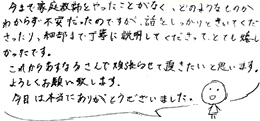 今まで家庭教師をやったことがなく、どのようなものか
わからず不安だったのですが、話をしっかりときいてくだ
さったり、細部まで丁寧に説明してくださって、とても嬉し
かったです。
これからあすなろさんで頑張らせて頂きたいと思います。
よろしくお願い致します。
今日は本当にありがとうございました。